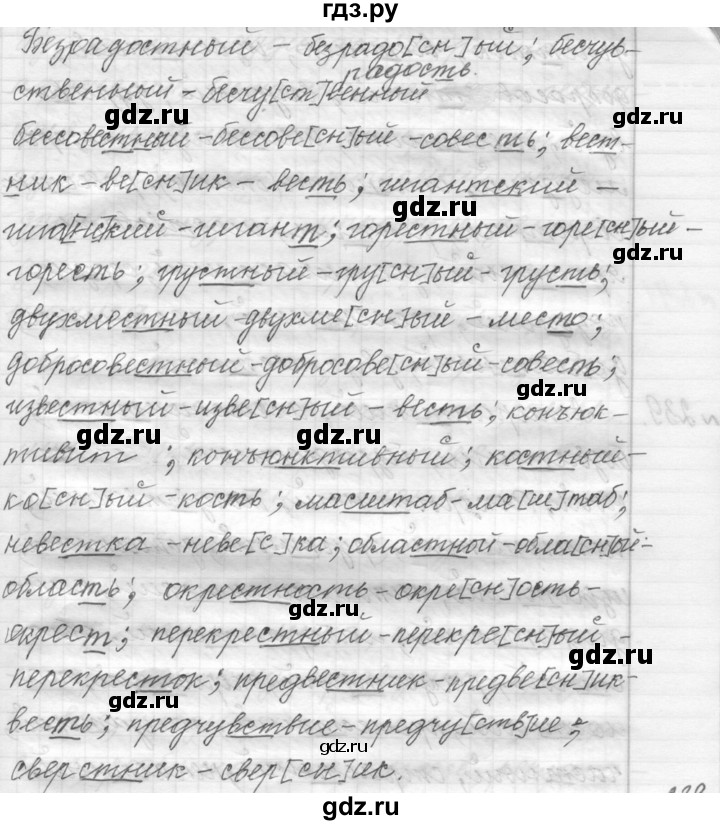 гдз.ру
Безрадостный - безрадо[сн]ый; бесчув-
радость.
ственный - бесчу[ств]венный
gdz.ru
gdz.ru
бессовестный - бессове[сн]ый - совесть; вест-
gdz.ru
gdz.ru
ник - ве[сн]ик - весть; гигантский -
gdz.ru
гига[нс]кий - гигант; горестный - горе[сн]ый -
gdz.ru
горесть; грустный - гру[сн]ый - грусть;
gdz.ru
двухместный - двухме[сн]ый - место;
gdz.ru
добросовестный - добросове[сн]ый - совесть;
gdz.ru
известный - изве[сн]ый - весть; конъюк-
gdz.ru
gdz.ru
тивит; конъюнктивный; костный -
ко[сн]ый - кость; масштаб - ма[ш]таб;
gdz.ru
невестка - неве[с]ка; областной - обла[сн]ой -
область; окрестность - окре[сн]ость -
gdz.ru
окрест; перекрестный - перекре[сн]ый -
gdz.ru
перекресток; предвестник - предве[сн]ик -
gdz.ru
весть; предчувствие - предчу[ств]ие;
gdz.ru
сверстник - свер[сн]ик.
gdz.ru